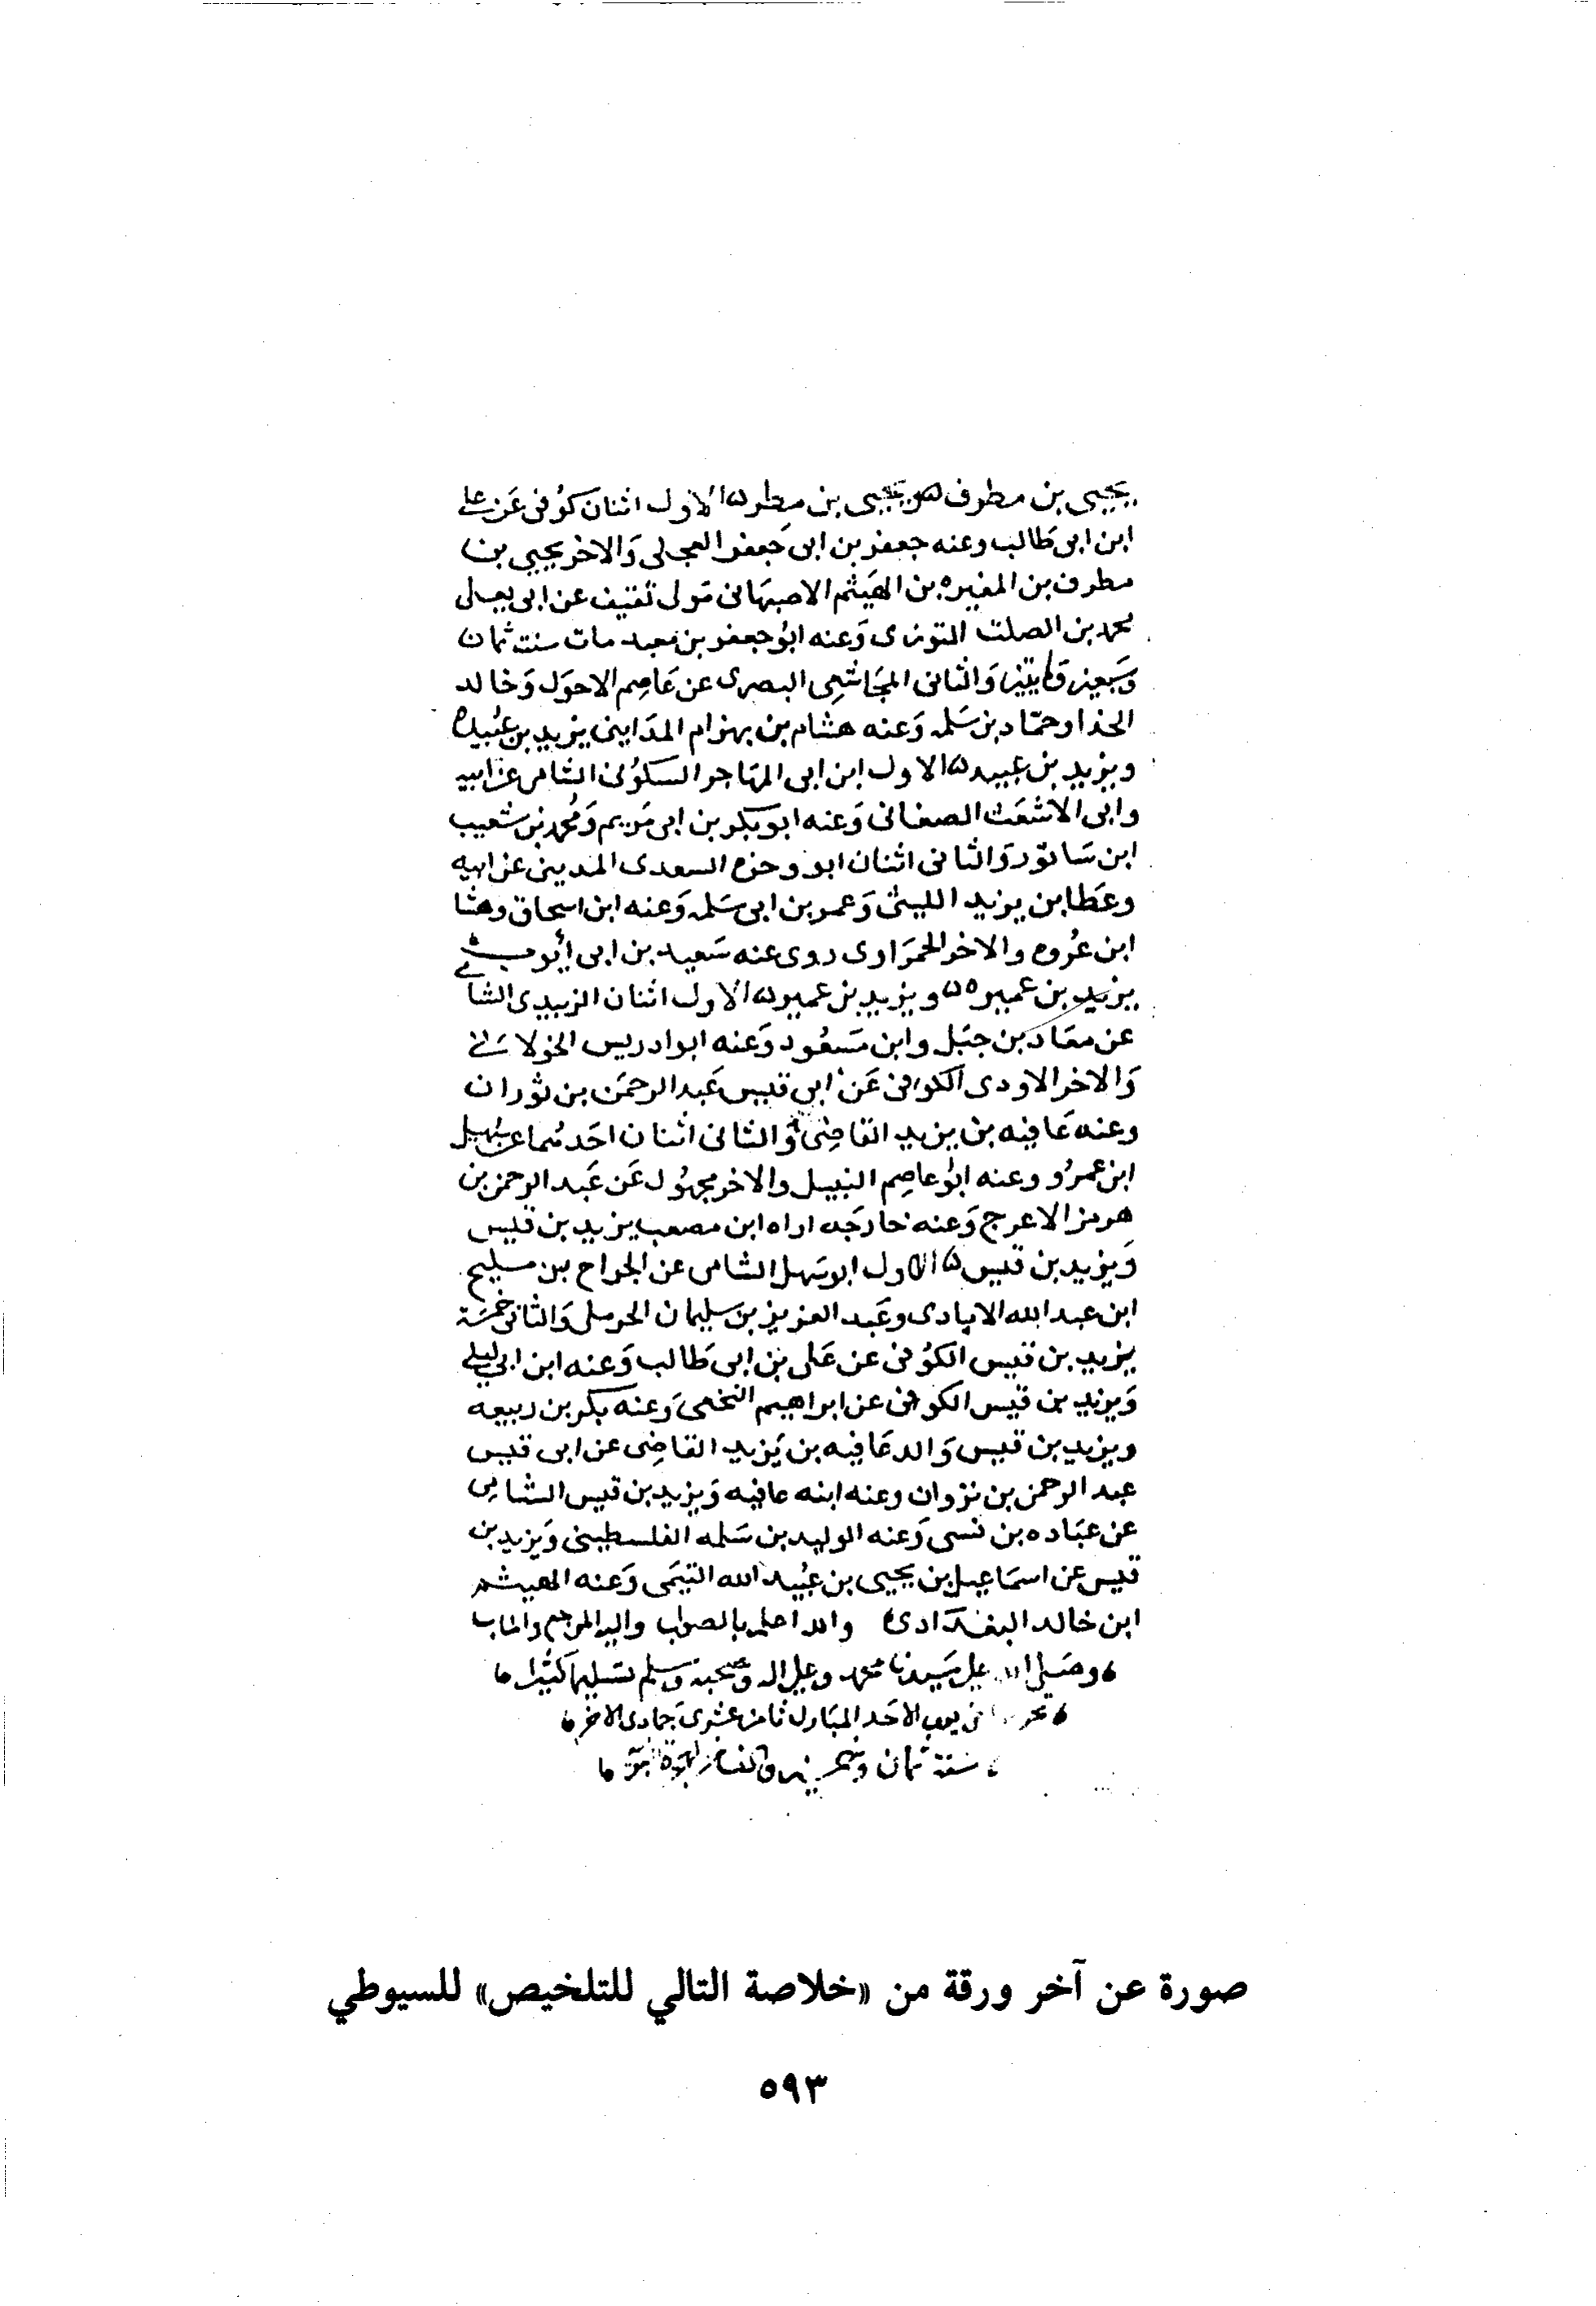 يحيى بن مطرف ويحيى بن مطر الاول اثنان كوفى عن على
ابن ابى طالب وعنه جعفر بن ابى جعفر العجلى والاخر يحيى بن
مطرف بن المغيره بن الهيثم الاصبهانى مولى ثقيف عن ابى يعلى
محمد بن الصلت التوزى وعنه ابو جعفر بن معبد مات سنت ثمان
وسبعين ومايتين والثانى المجاشعى البصرى عن عاصم الاحول وخالد
الحذا وحماد بن سلمه وعنه هشام بن بهرام المداينى يزيد بن عبيده
ويزيد بن عبيد الاول ابن ابى المهاجر السكونى الشامى عن ابيه
وابى الاشعث الصغانى وعنه ابو بكر بن ابى مريم ومحمد بن شعيب
ابن سابور والثانى اثنان ابو وجزه السعدى المدينى عن ابيه
وعطا بن يزيد الليثى وعمر بن ابى سلمه وعنه ابن اسحاق وهشا
ابن عروه والاخر الحمراوى روى عنه سعيد بن ابى أيوب
يزيد بن عميره ويزيد بن عمير الاول اثنان الزبيدى الشا
عن معاذ بن جبل وابن مسعود وعنه ابو ادريس الخولانى
والاخر الاودى الكوفى عن ابى قيس عبد الرحمن بن ثوران
وعنه عافيه بن يزيد القاضى والثانى اثنان احدهما عن سهيل
ابن عمرو وعنه ابو عاصم النبيل والاخر مجهول عن عبد الرحمن بن
هرمز الاعرج وعنه خارجه اراه ابن مصعب يزيد بن قبيس
ويزيد بن قيس الاول ابو سهل الشامى عن الجراح بن مليح
ابن عبد الله الايادى وعبد العزيز بن سليمان الحرملى والثانى خمسة
يزيد بن قيس الكوفى عن على بن ابى طالب وعنه ابن ابى ليلى
ويزيد بن قيس الكوفى عن ابراهيم النخعى وعنه بكر بن ربيعه
ويزيد بن قيس والد عافيه بن يزيد القاضى عن ابى قيس
عبد الرحمن بن نزوان وعنه ابنه عافيه ويزيد بن قيس الشامى
عن عباده بن نسى وعنه الوليد بن سلمه الفلسطينى ويزيد بن
قيس عن اسماعيل بن يحيى بن عبيد الله التيمى وعنه الهيثم
ابن خالد البغدادى والله اعلم بالصواب واليه المرجع والماب
وصلى الله على سيدنا محمد وعلى اله وصحبه وسلم تسليما كثيرا
فى يوم الاحد المبارك ثامن عشرى جمادى الاخر
سنة ثمان
صورة عن آخر ورقة من «خلاصة التالي للتلخيص» للسيوطي
٥٩٣